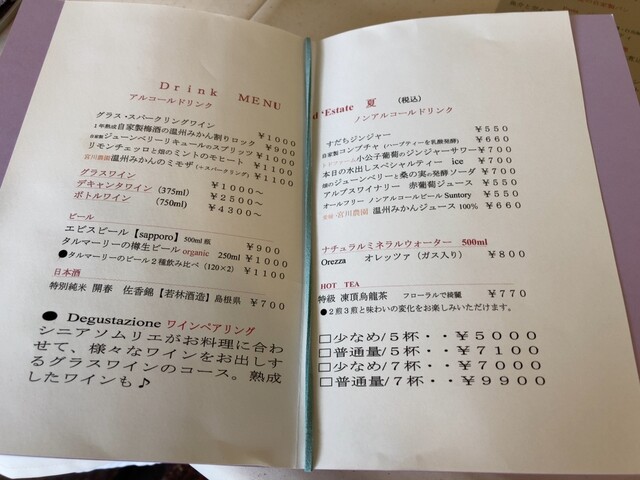 Drink MENU
アルコールドリンク
グラス・スパークリングワイン ￥1000
1年熟成自家製梅酒の温州みかん割りロック ￥900
自家製ジューンベリーリキュールのスプリッツ ￥1000
リモンチェッロと畑のミントのモヒート ￥1100
宮川農園 温州みかんのミモザ (+スパークリング) ￥1100
グラスワイン ￥1000〜
デキャンタワイン (375ml) ￥2500〜
ボトルワイン (750ml) ￥4300〜
ビール
エビスビール【sapporo】500ml 瓶 ￥900
タルマーリーの樽生ビール organic 250ml ￥1000
●タルマーリーのビール2種飲み比べ (120×2) ￥1100
日本酒
特別純米 開春 佐香錦【若林酒造】島根県 ￥700
● Degustazione ワインペアリング
シニアソムリエがお料理に合わ
せて、様々なワインをお出しす
るグラスワインのコース。熟成
したワインも♪
d 'Estate 夏 (税込)
ノンアルコールドリンク
すだちジンジャー ￥550
自家製コンブチャ (ハーブティーを乳酸発酵) ￥660
小公子葡萄のジンジャーサワー ￥700
本日の水出しスペシャルティー ice ￥700
畑のジューンベリーと桑の実の発酵ソーダ ￥700
アルプスワイナリー 赤葡萄ジュース ￥550
オールフリー ノンアルコールビール Suntory ￥550
宮川農園 温州みかんジュース 100% ￥660
ナチュラルミネラルウォーター 500ml
Orezza オレッツァ (ガス入り) ￥800
HOT TEA
特級 凍頂烏龍茶 フローラルで綺麗 ￥770
●2煎3煎と味わいの変化をお楽しみいただけます。
□少なめ/5杯・・￥5000
□普通量/5杯・・￥7100
□少なめ/7杯・・￥7000
□普通量/7杯・・￥9900